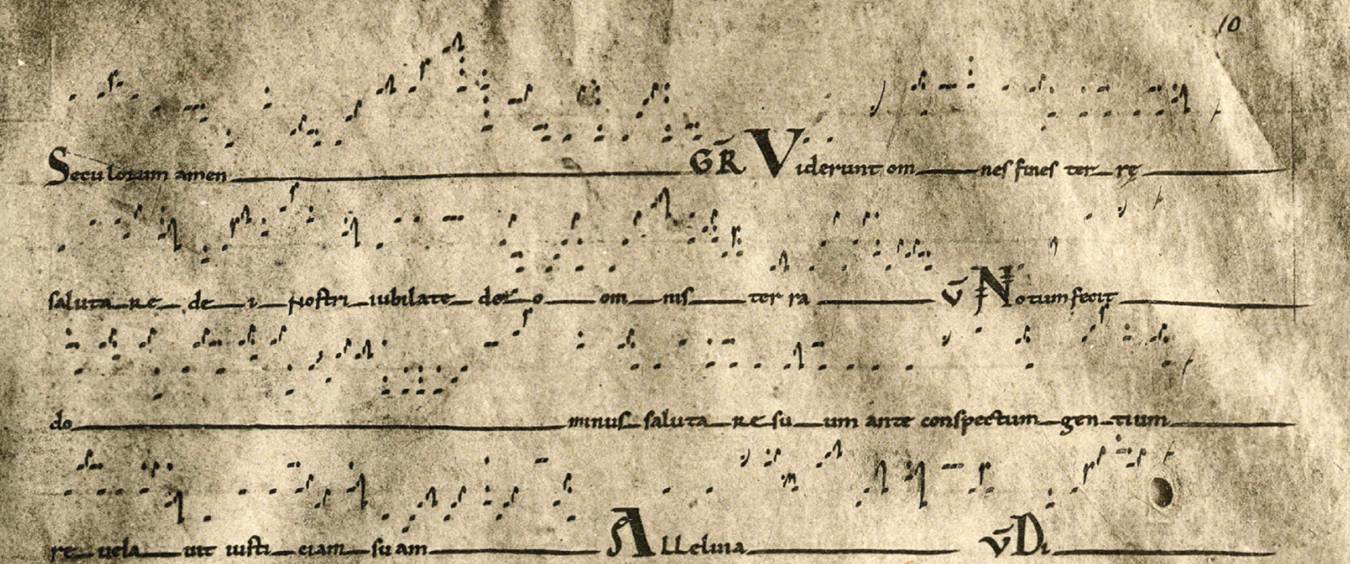 10
Seculorum amen GR Viderunt om nes fines ter rę
saluta re de i nostri iubilate deo o om nis ter ra V Notum fecit
do minus saluta re su um ante conspectum gen tium
re vela uit iusti ciam suam Alleluia V Di